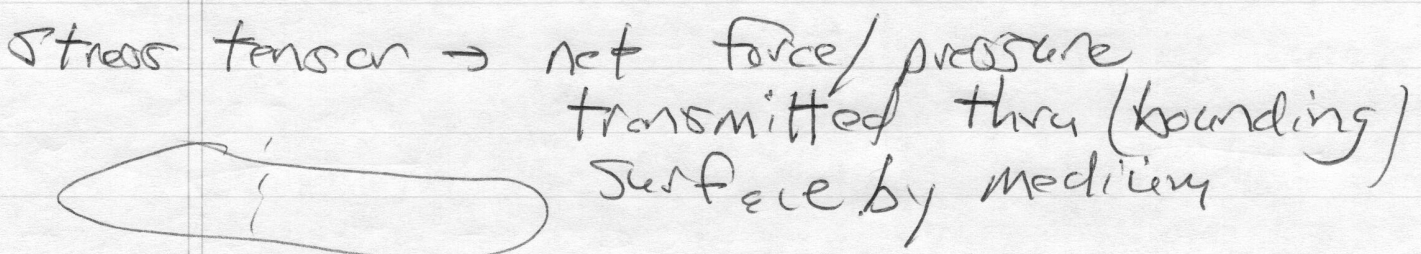 stress tensor → net force/pressure
transmitted thru (bounding)
surface by medium